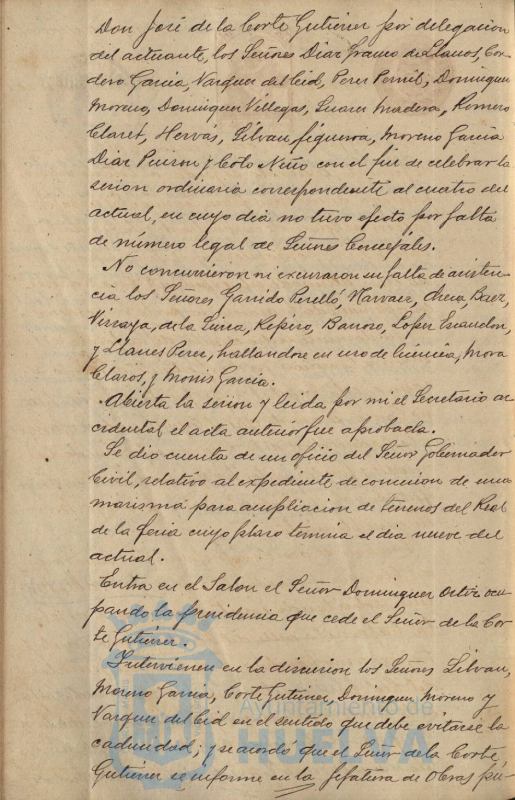 Don José de la Corte Gutierrez por delegacion
del actuante, los Señores Diaz Franco de Llanos, Cor-
dero Garcia, Vazquez del Cid, Perez Pernil, Dominguez
Moreno, Dominguez Villegas, Suarez Madera, Romero
Claret, Hervás, Silvan Figueroa, Moreno Garcia
Diaz y Coto Niño con el fin de celebrar la
sesion ordinaria correspondiente al cuatro del
actual, en cuyo dia no tuvo efecto por falta
de número legal de Señores Concejáles.
No concurrieron ni excusaron su falta de asisten-
cia los Señores Garrido Perelló, Narvaez, Baez,
Vizcaya, de la Repiso, Barroso, Lopez Escandon,
y Llanes Perez, hallandose en uso de licencia, Mora
Claros, y Monis Garcia.
Abierta la sesion y leida por mi el Secretario ac-
cidental el acta anterior fue aprobada.
Se dio cuenta de un oficio del Señor Gobernador
Civil, relativo al expediente de concesion de una
marisma para ampliacion de terrenos del Real
de la feria cuyo plazo termina el dia nueve del
actual.
Entra en el Salon el Señor Dominguez Ortiz ocu-
pando la presidencia que cede el Señor de la Cor-
te Gutierrez.
Intervienen en la discusion los Señores Silvan,
Moreno Garcia, Corte Gutierrez, Dominguez Moreno y
Vazquez del Cid en el sentido que debe evitarse la
caducidad; y se acordó que el Señor de la Corte
Gutierrez se informe en la Jefatura de Obras pú-
Ayuntamiento de
HUELVA